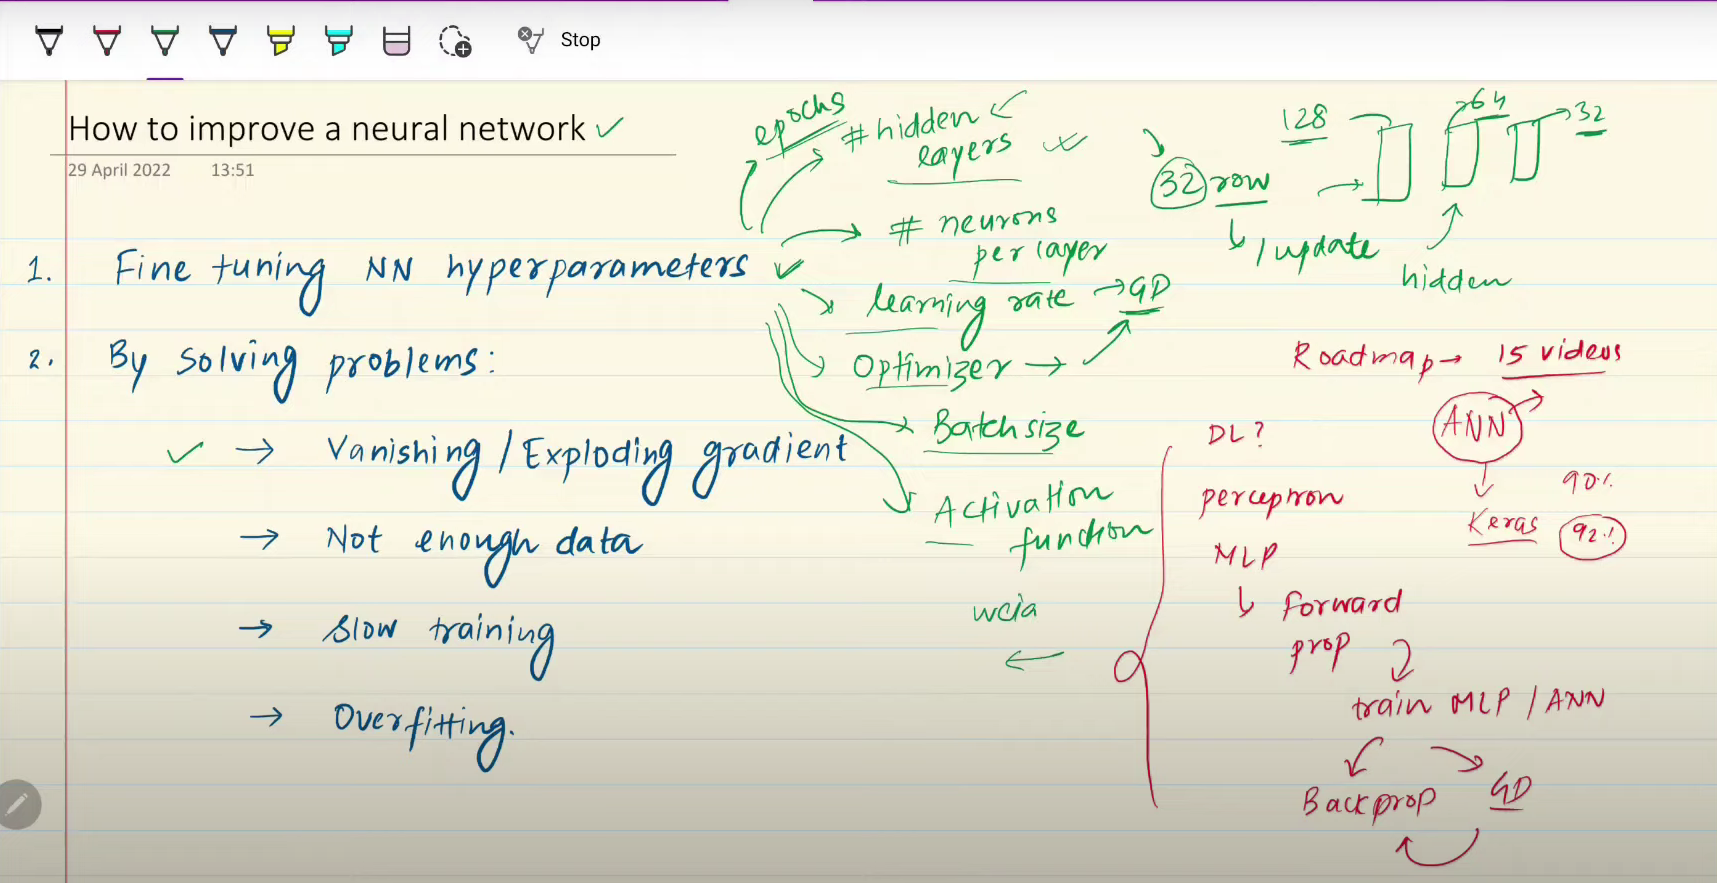 Stop
How to improve a neural network
29 April 2022 13:51
1. Fine tuning NN hyperparameters
2. By solving problems:
→ Vanishing / Exploding gradient
→ Not enough data
→ Slow training
→ Overfitting.
epochs
# hidden
layers
# neurons
per layer
learning rate → GD
Optimizer →
Batch size
Activation
function
32 row
1 update
128
64
32
hidden
Roadmap → 15 videos
ANN
Keras
90%
92%
DL?
perceptron
MLP
forward
prop
train MLP / ANN
Backprop
GD